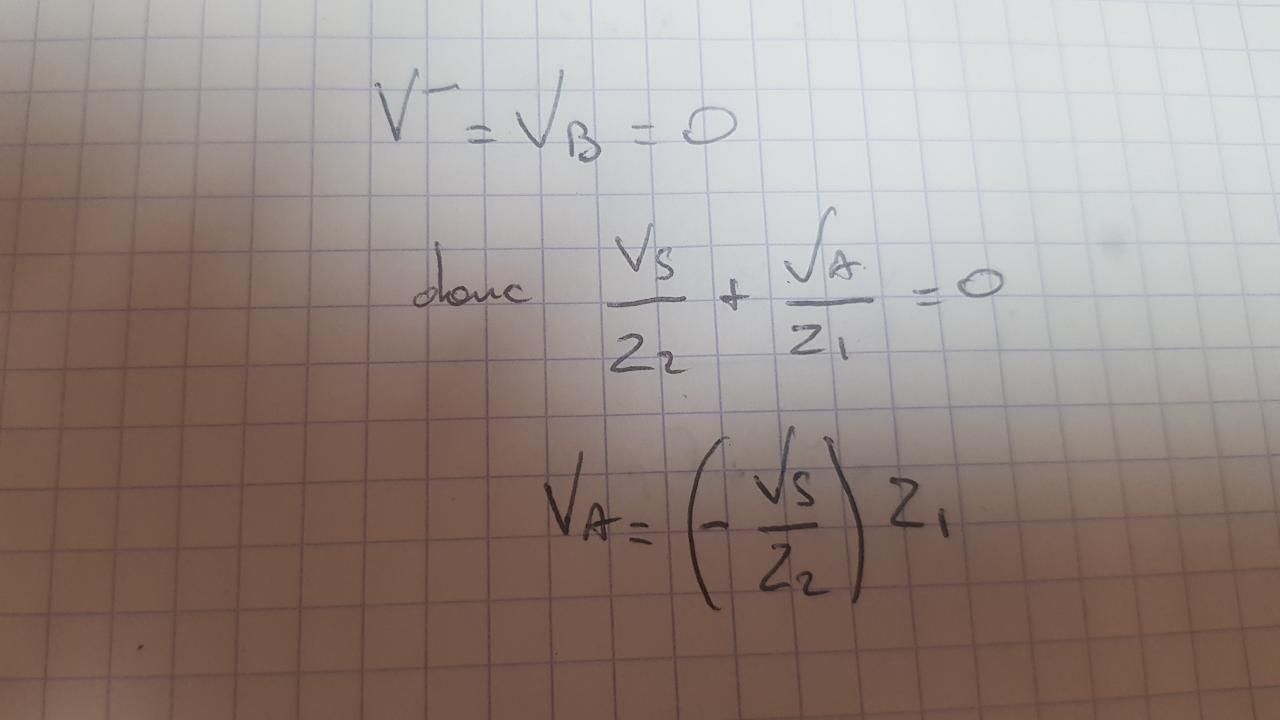 V⁻ = V_B = 0
donc V_S/Z_2 + V_A/Z_1 = 0
V_A = (- V_S/Z_2) Z_1